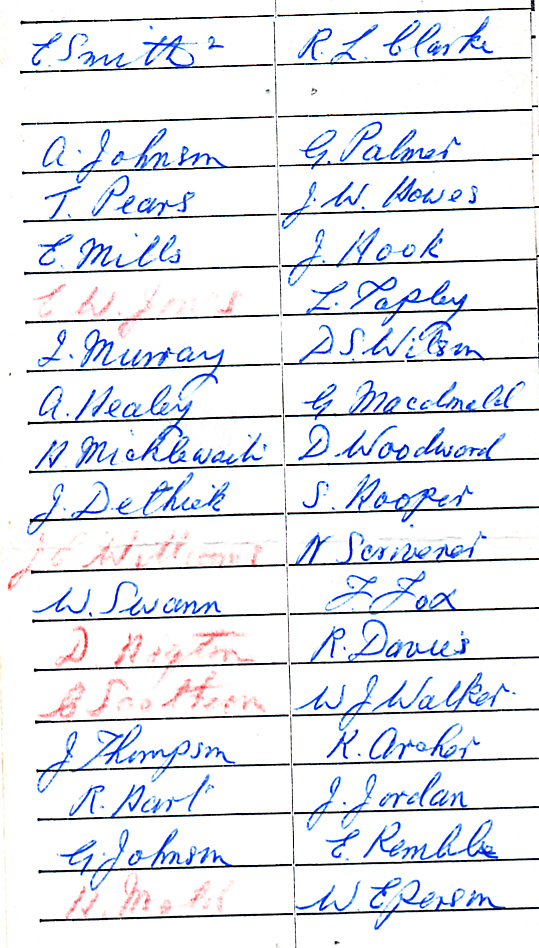 E. Smith ² R. L. Clarke
A. Johnson G. Palmer
T. Pears J. W. Howes
E. Mills J. Hook
E W. Jones L. Tapley
I. Murray D S. Wilson
A. Healey G Macdonald
H Micklewaite D Woodward
J. Dethick S. Hooper
J E Williams N Scrivener
W. Swann F. Fox
D R. Davies
W J Walker.
J Thompson K. Archer
R. Hart J. Jordan
G. Johnson E. Kemble
H. W. EPerson